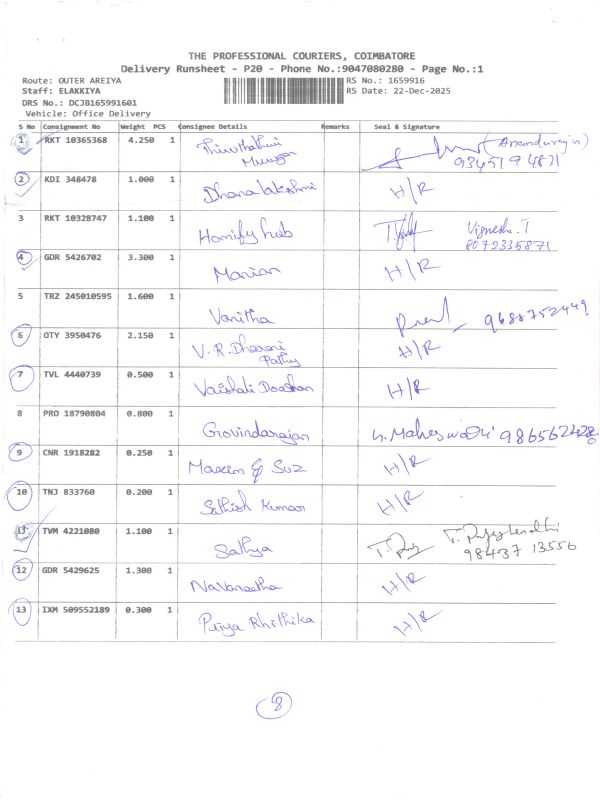 THE PROFESSIONAL COURIERS, COIMBATORE
Delivery Runsheet - P20 - Phone No.:9047080280 - Page No.:1
Route: OUTER AREIYA RS No.: 1659916
Staff: ELAKKIYA RS Date: 22-Dec-2025
DRS No.: DCJB165991601
Vehicle: Office Delivery
S No Consignment No Weight PCS Consignee Details Remarks Seal & Signature
1 RKT 10365368 4.250 1 Murugan
2 KDI 348478 1.000 1 Dhana lakshmi H/R
3 RKT 10328747 1.100 1 Homify hub Vignesh. T
8072335871
4 GDR 5426702 3.300 1 Marian H/R
5 TRZ 245010595 1.600 1 Vanitha 9688752449
6 OTY 3950476 2.150 1 V. R. Dharani H/R
Pathy
7 TVL 4440739 0.500 1 Vaishali H/R
8 PRO 18790804 0.800 1 Govindarajan
9 CNR 1918282 0.250 1 H/R
10 TNJ 833760 0.200 1 Sathish Kumar H/R
11 TVM 4221080 1.100 1 Sathya
98437 13556
12 GDR 5429625 1.300 1 Navaneetha H/R
13 IXM 509552189 0.300 1 Priya Rhithika H/R
8